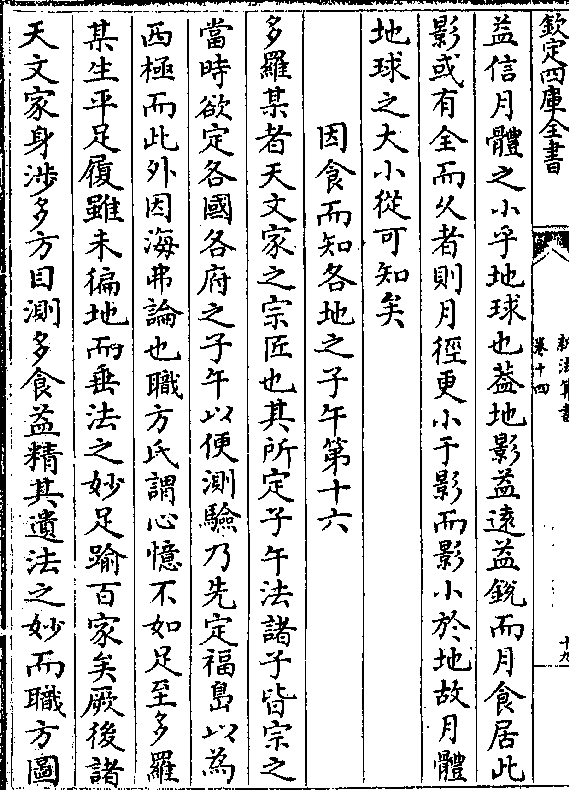 欽定四庫全書
新法算書
卷十四
十九
益信月體之小乎地球也葢地影益遠益銳而月食居此
影或有全而乆者則月徑更小于影而影小於地故月體
地球之大小從可知矣
因食而知各地之子午第十六
多羅某者天文家之宗匠也其所定子午法諸子皆宗之
當時欲定各國各府之子午以便測驗乃先定福島以為
西極而此外因海弗論也職方氏謂心憶不如足至多羅
某生平足履雖未徧地而垂法之妙足踰百家矣厥後諸
天文家身渉多方目測多食益精其遺法之妙而職方圖